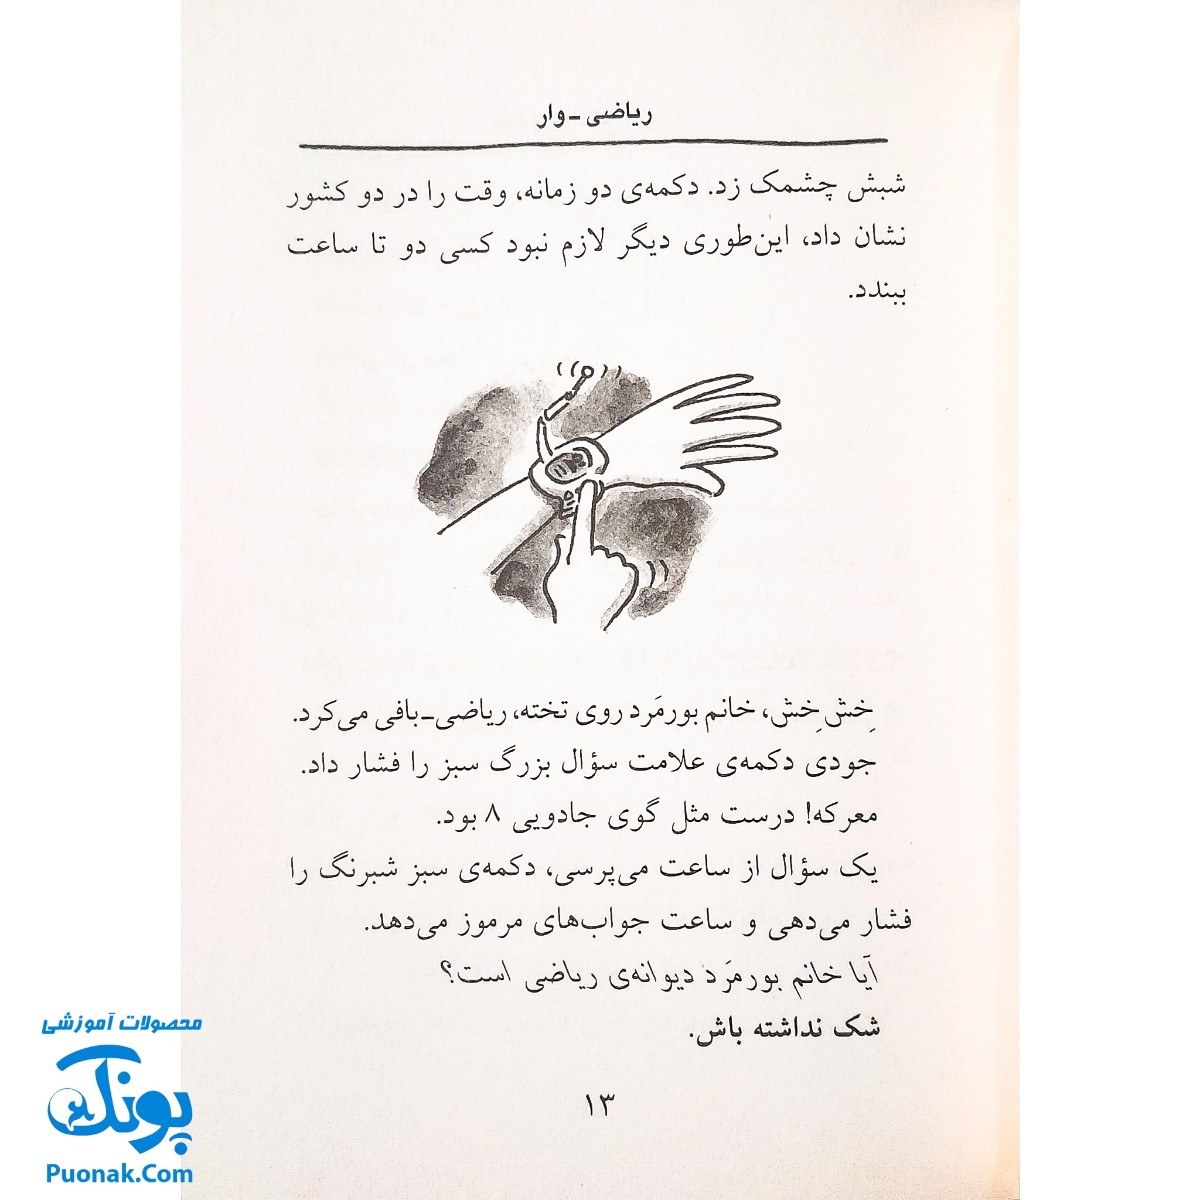 ریاضی-وار
شبش چشمک زد. دکمه‌ی دو زمانه، وقت را در دو کشور
نشان داد، این‌طوری دیگر لازم نبود کسی دو تا ساعت
ببندد.
خِش خِش، خانم بورمَرد روی تخته، ریاضی-بافی می‌کرد.
جودی دکمه‌ی علامت سؤال بزرگ سبز را فشار داد.
معرکه! درست مثل گوی جادویی ۸ بود.
یک سؤال از ساعت می‌پرسی، دکمه‌ی سبز شبرنگ را
فشار می‌دهی و ساعت جواب‌های مرموز می‌دهد.
آیا خانم بورمَرد دیوانه‌ی ریاضی است؟
شک نداشته باش.
۱۳
محصولات آموزشی
پونک
Puonak.Com